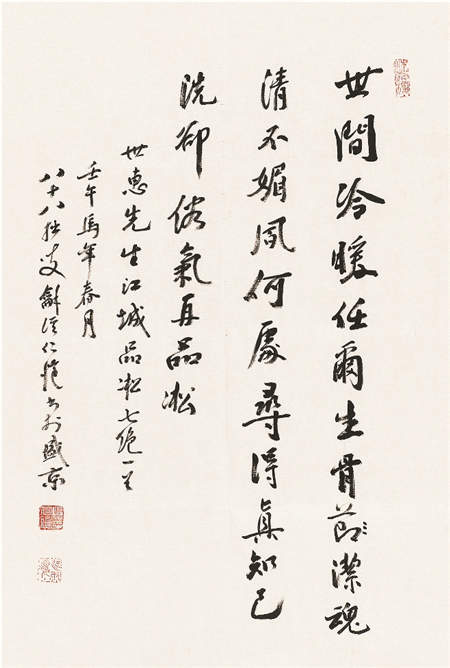 世間冷暖任爾生骨節潔魂
清不媚風何處尋得眞知己
洗卻俗氣再品凇
世惠先生江城品凇七絕一首
壬午馬年春月
八十八拙叟龢溪仁愷書於盛京